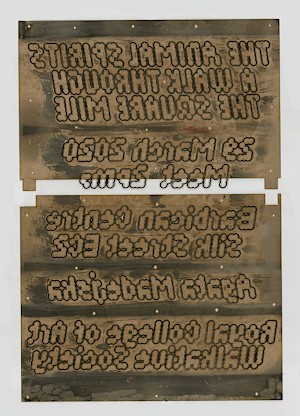 THE ANIMAL SPIRITS
A WALK THROUGH
THE SQUARE MILE
March 2020
Meet 2pm
Barbican Centre
Silk Street EC2
Agata Madejska
Royal College of Art
Walkative Society